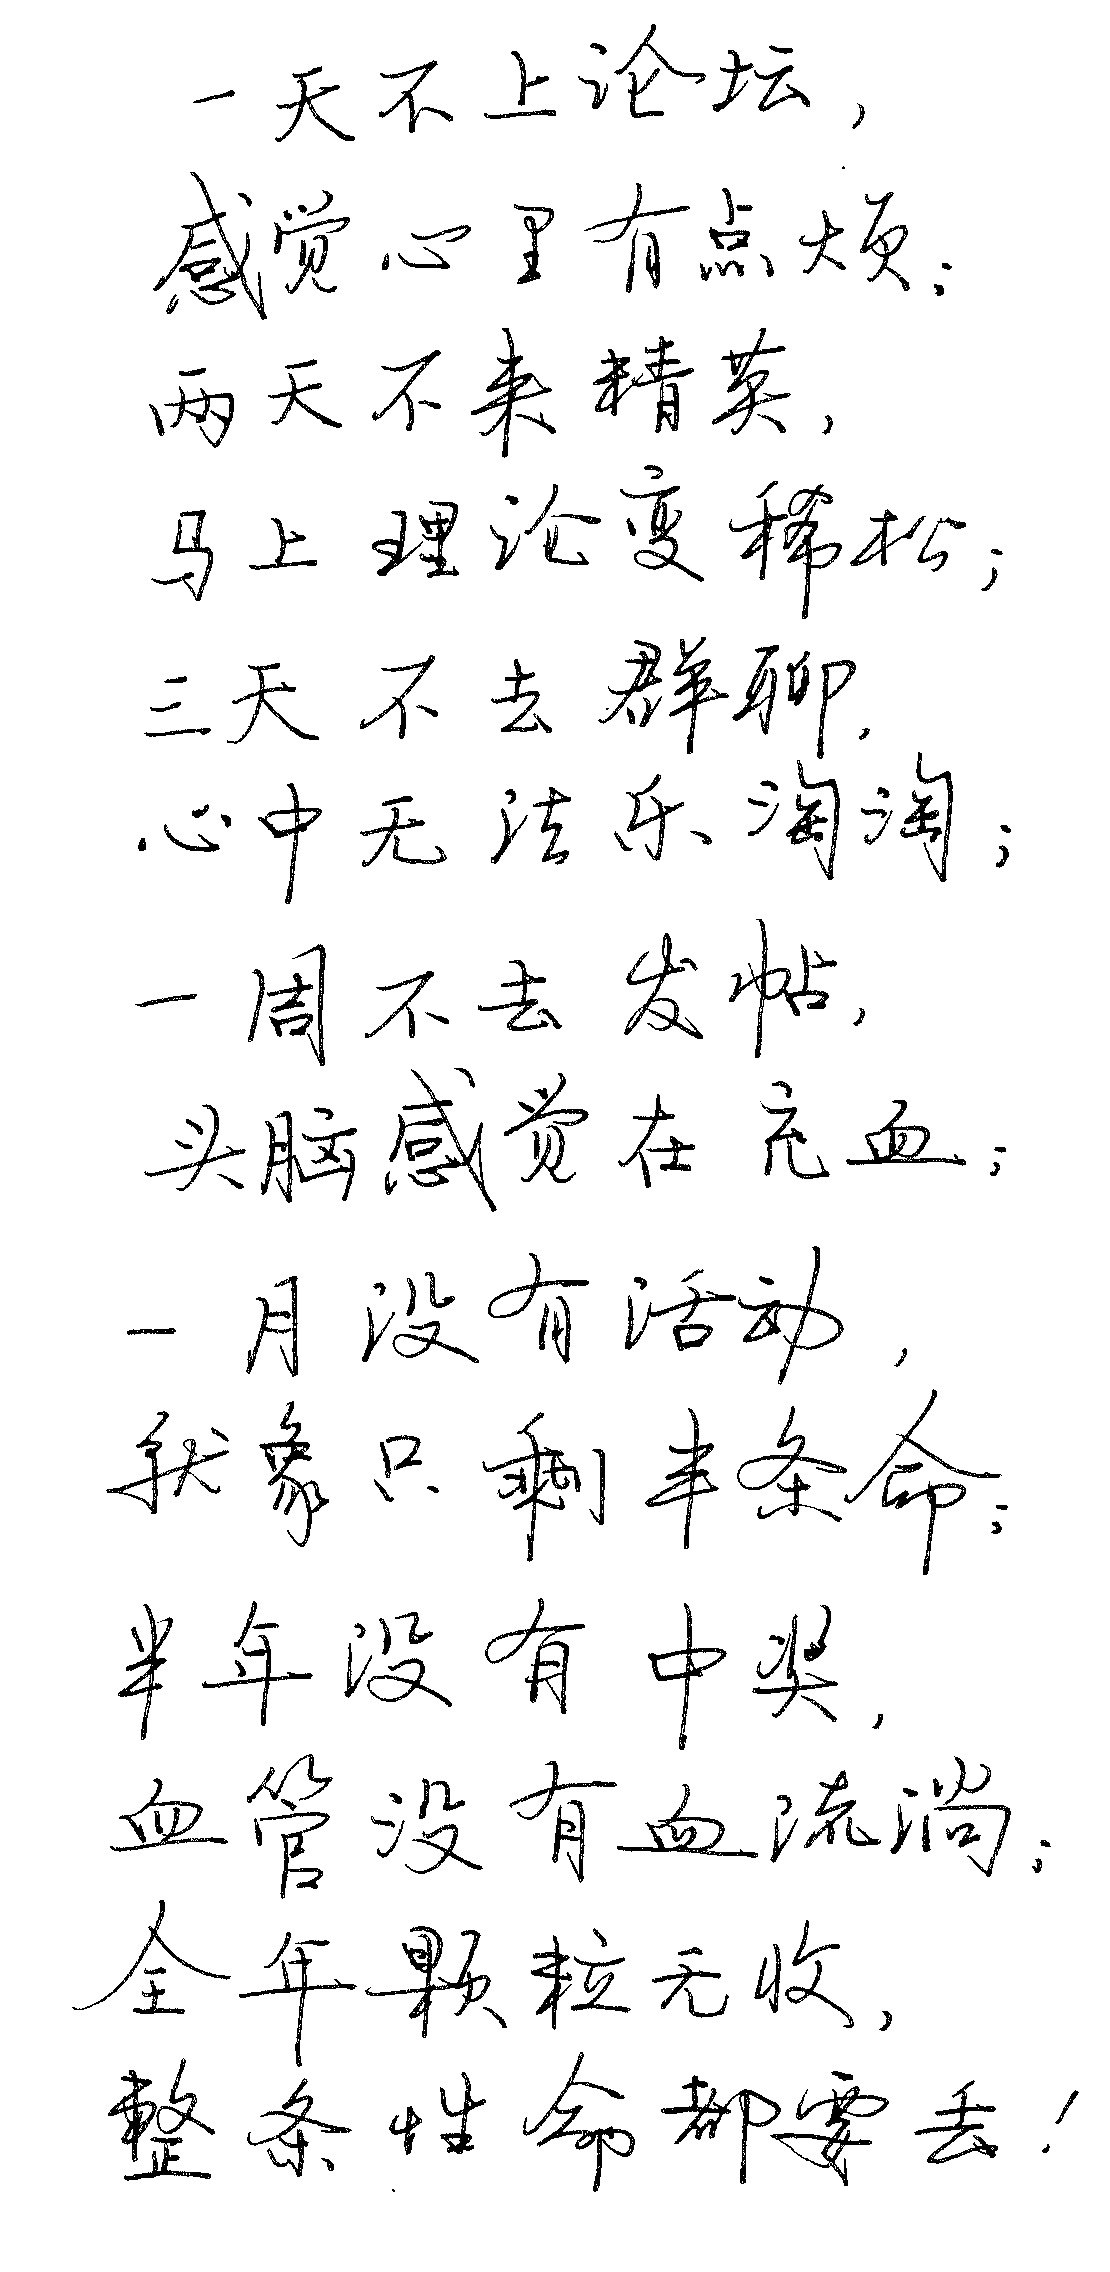 一天不上论坛，
感觉心里有点烦；
两天不来精英，
马上理论变稀松；
三天不去群聊，
心中无法乐淘淘；
一周不去发帖，
头脑感觉在充血；
一月没有活动，
就象只剩半条命；
半年没有中奖，
血管没有血流淌；
全年颗粒无收，
整条性命都要丢！